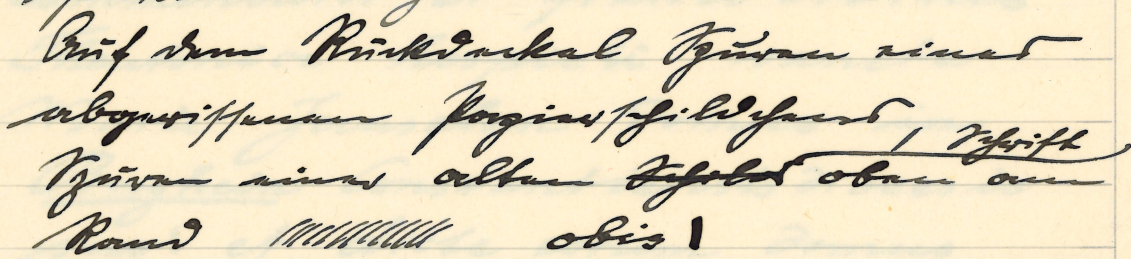 Auf dem Rückdeckel Spuren eines
abgerissenen Papierschildchens,
Spuren einer alten Schrift oben am
Rand obis